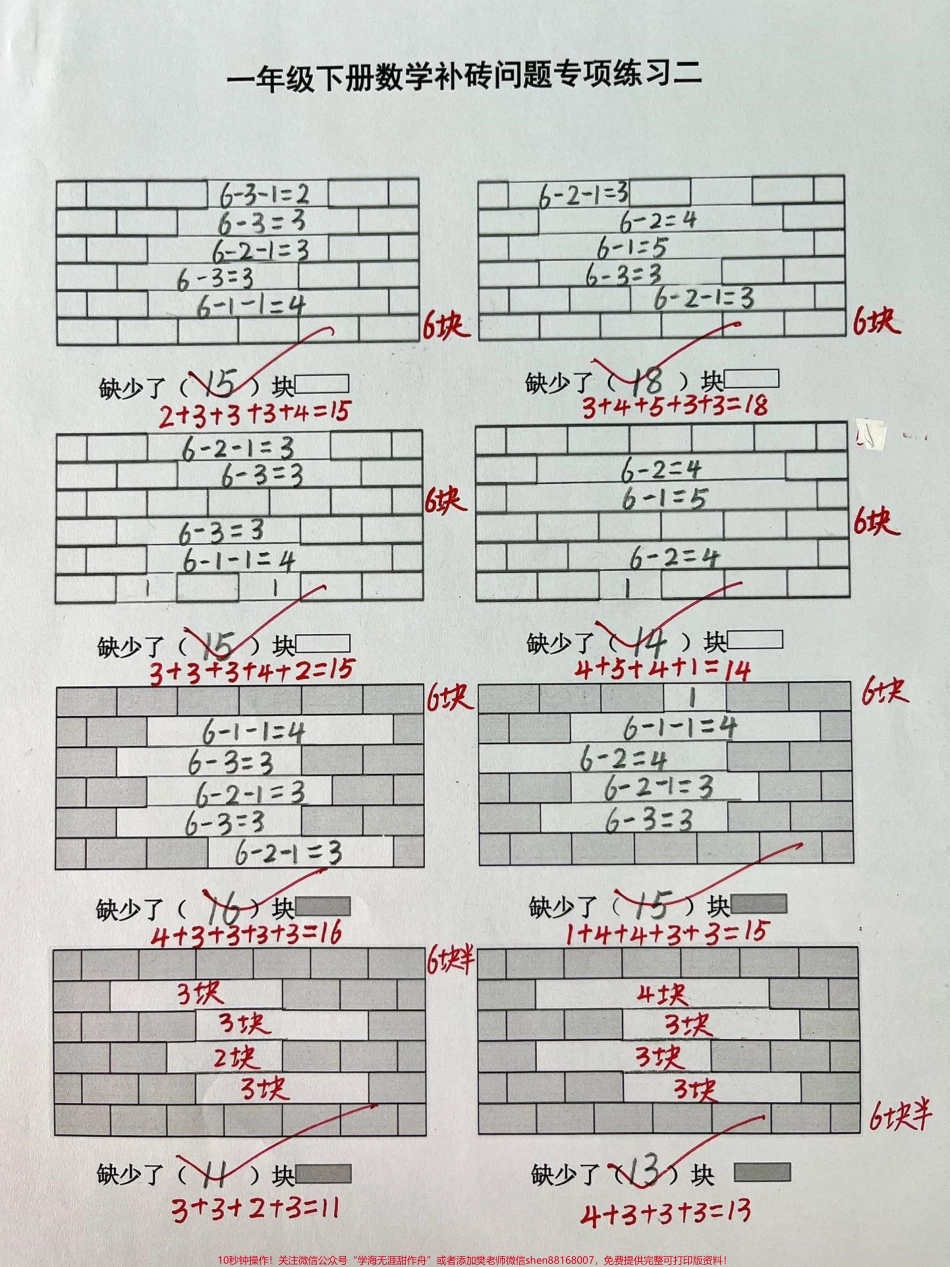 一年级下册数学补砖问题专项练习二
6-3-1=2
6-3=3
6-2-1=3
6-3=3
6-1-1=4
6块
缺少了（ 15 ）块
2+3+3+3+4=15
6-2-1=3
6-2=4
6-1=5
6-3=3
6-2-1=3
6块
缺少了（ 18 ）块
3+4+5+3+3=18
6-2-1=3
6-3=3
6块
6-3=3
6-1-1=4
1 1
缺少了（ 15 ）块
3+3+3+4+2=15
6-2=4
6-1=5
6块
6-2=4
1
缺少了（ 14 ）块
4+5+4+1=14
6块
6-1-1=4
6-3=3
6-2-1=3
6-3=3
6-2-1=3
缺少了（ 16 ）块
4+3+3+3+3=16
1
6块
6-1-1=4
6-2=4
6-2-1=3
6-3=3
缺少了（ 15 ）块
1+4+4+3+3=15
6块半
3块
3块
2块
3块
缺少了（ 11 ）块
3+3+2+3=11
4块
3块
3块
3块
6块半
缺少了（ 13 ）块
4+3+3+3=13
10秒钟操作！关注微信公众号“学海无涯甜作舟”或者添加樊老师微信shen88168007，免费提供完整可打印版资料！